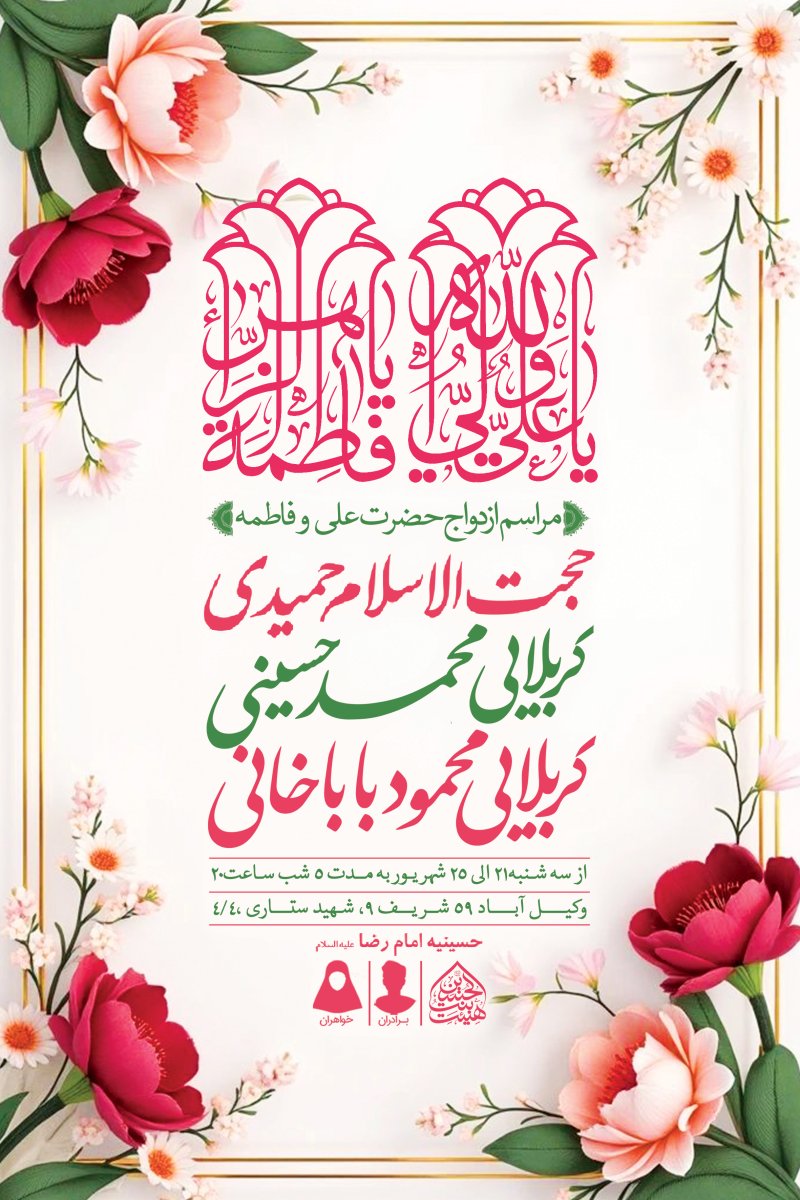 یا علی ولی الله
یا فاطمة الزهراء
مراسم ازدواج حضرت علی و فاطمه
حجت الاسلام حمیدی
کربلایی محمد حسینی
کربلایی محمود باباخانی
از سه شنبه ۲۱ الی ۲۵ شهریور به مدت ۵ شب ساعت ۲۰
وکیل آباد ۵۹ شریف ۹، شهید ستاری ۴/۴،
حسینیه امام رضا علیه السلام
برادران
خواهران